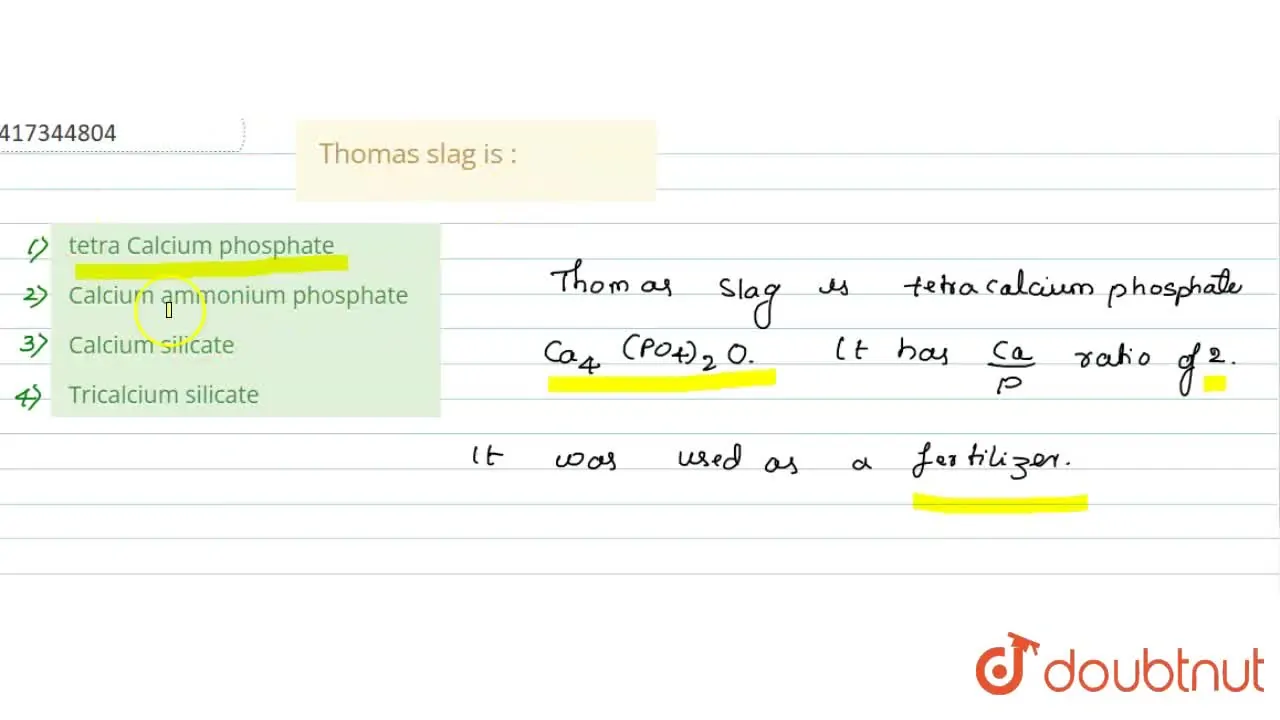 417344804
Thomas slag is :
1) tetra Calcium phosphate
2) Calcium ammonium phosphate
3) Calcium silicate
4) Tricalcium silicate
Thomas slag is tetracalcium phosphate
Ca4 (PO4)2 O. It has Ca/P ratio of 2.
It was used as a fertilizer.
doubtnut